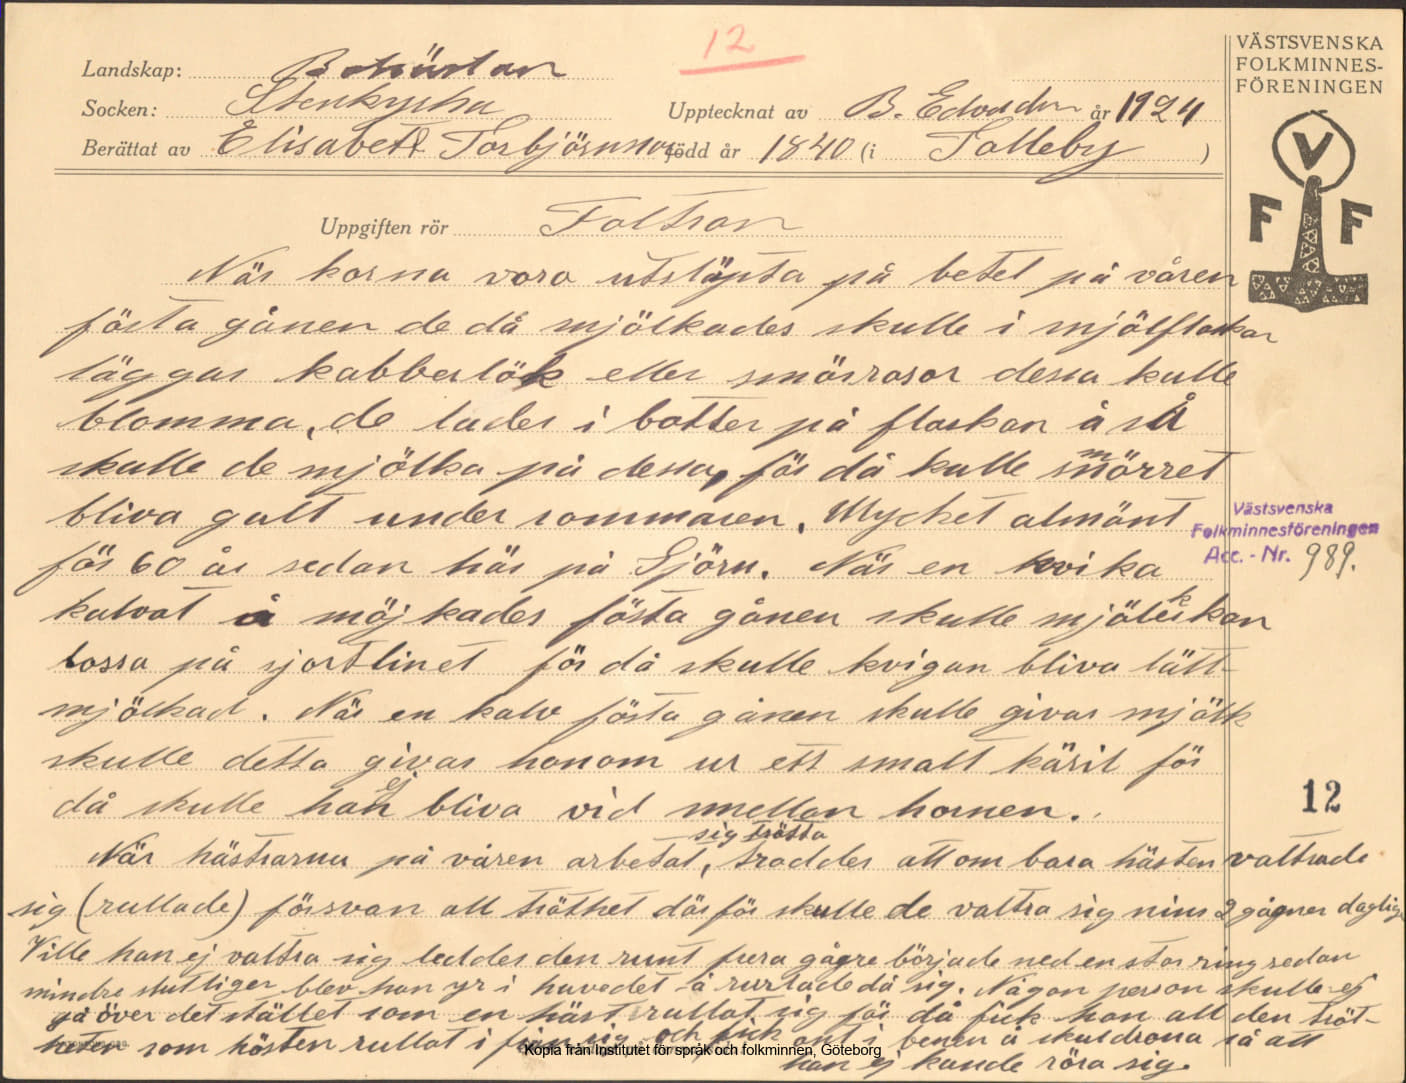 12
Landskap: Bohuslän
Socken: Stenkyrka
Upptecknat av B. Edvardsen år 1924
Berättat av Elisabett Torbjörnsson född år 1840 (i Tolleby)
VÄSTSVENSKA
FOLKMINNES-
FÖRENINGEN
V
F F
Uppgiften rör Folktron
När korna voro utsläpta på betet på våren
fösta gånen de då mjölkades skulle i mjölflaskan
läggas kabberlök eller smörrosor dessa kulle
blomma, de lades i botten på flaskan å så
skulle de mjölka på dessa, för då kulle smörret
bliva gult under sommaren. Mycket almänt
för 60 år sedan här på Tjörn. När en kvika
kalvat å möjkades fösta gånen skulle mjölkerskan
tossa på sjortlinet för då skulle kvigan bliva lätt-
mjölkad. När en kalv fösta gånen skulle givas mjölk
skulle detta givas honom ur ett smalt käril för
då skulle han ej bliva vid mellan hornen.
När hästrarna på våren arbetat sig trötta, troddes att om bara hästen valtrade
sig (rullade) försvan all tröthet där för skulle de valtra sig mins 2 gågner daglig
Ville han ej valtra sig leddes den runt fera gågre började ned en stor ring sedan
mindre slutliger blev han yr i huvedet å rurlade då sig. Någon person skulle ej
gå över det stället som en häst rullat sig för då fick han all den tröt-
heten som hösten rullat i från sig och fick ont i benen å skuldrona så att
han ej kunde röra sig.
Västsvenska
Folkminnesföreningen
Acc. - Nr. 989.
12
Kopia från Institutet för språk och folkminnen, Göteborg